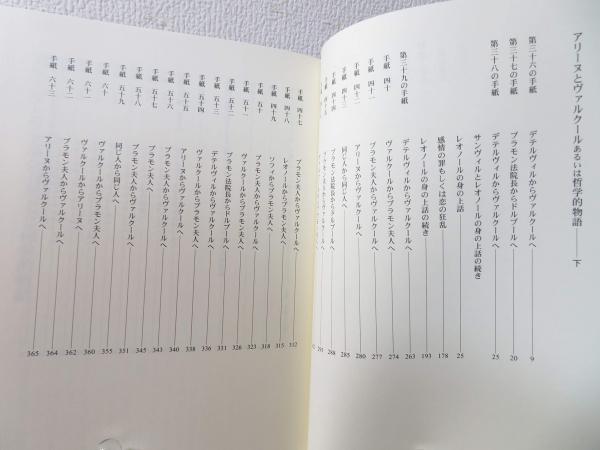 アリーヌとヴァルクールあるいは哲学的物語――下
第三十六の手紙 デテルヴィルからヴァルクールへ 9
第三十七の手紙 ブラモン法院長からドルブールへ 20
第三十八の手紙 デテルヴィルからヴァルクールへ 25
サンヴィルとレオノールの身の上話の続き
レオノールの身の上話 25
感情の罪もしくは恋の狂乱 178
レオノールの身の上話の続き 193
第三十九の手紙 デテルヴィルからヴァルクールへ 263
手紙 四十 ヴァルクールからブラモン夫人へ 274
手紙 四十一 ブラモン夫人からヴァルクールへ 277
手紙 四十二 アリーヌからヴァルクールへ 280
手紙 四十三 同じ人から同じ人へ 285
手紙 四十四 ブラモン法院長からドルブールへ 288
手紙 四十七 ブラモン夫人からヴァルクールへ 312
手紙 四十八 レオノールからブラモン夫人へ 315
手紙 四十九 ソフィからブラモン夫人へ 318
手紙 五十 ブラモン夫人からヴァルクールへ 323
手紙 五十一 ヴァルクールからブラモン夫人へ 326
手紙 五十二 ブラモン法院長からドルブールへ 331
手紙 五十三 デテルヴィルからヴァルクールへ 336
手紙 五十四 ヴァルクールからデテルヴィルへ 338
手紙 五十五 アリーヌからヴァルクールへ 340
手紙 五十六 ブラモン夫人からヴァルクールへ 343
手紙 五十七 ブラモン夫人へ 345
手紙 五十八 ブラモン夫人からヴァルクールへ 351
手紙 五十九 同じ人から同じ人へ 355
手紙 六十 ヴァルクールからブラモン夫人へ 360
手紙 六十一 ヴァルクールからアリーヌへ 362
手紙 六十二 ブラモン夫人からヴァルクールへ 364
手紙 六十三 アリーヌからヴァルクールへ 365